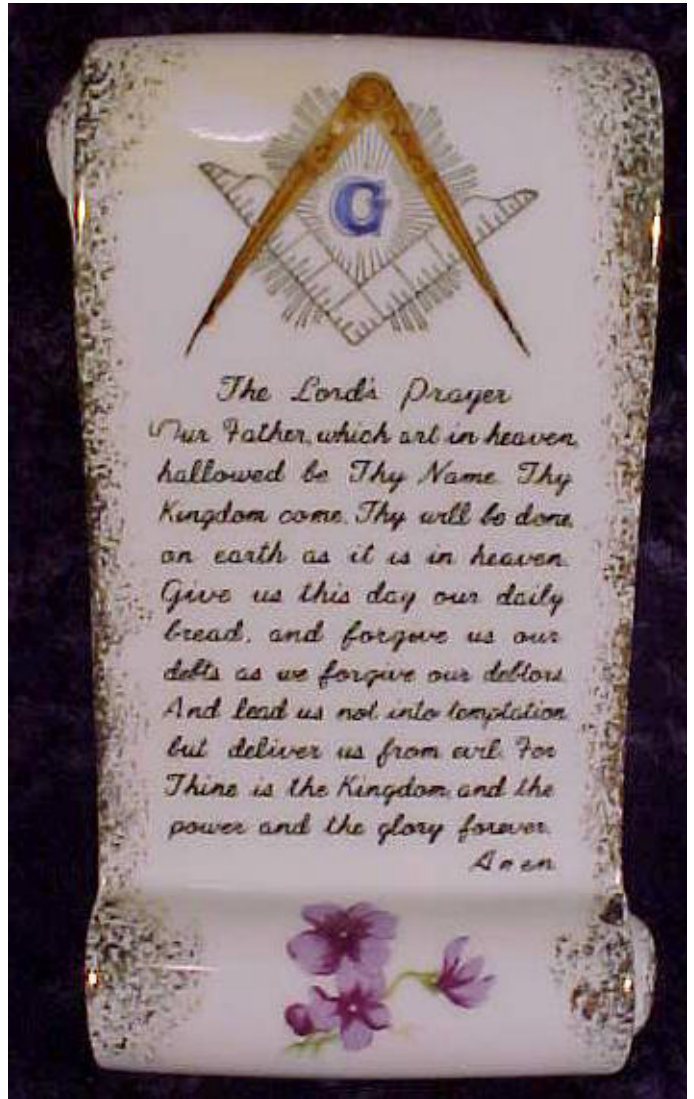 G
The Lord's Prayer
Our Father, which art in heaven,
hallowed be Thy Name. Thy
Kingdom come. Thy will be done,
on earth as it is in heaven.
Give us this day our daily
bread, and forgive us our
debts as we forgive our debtors.
And lead us not into temptation
but deliver us from evil. For
Thine is the Kingdom, and the
power and the glory forever.
Amen